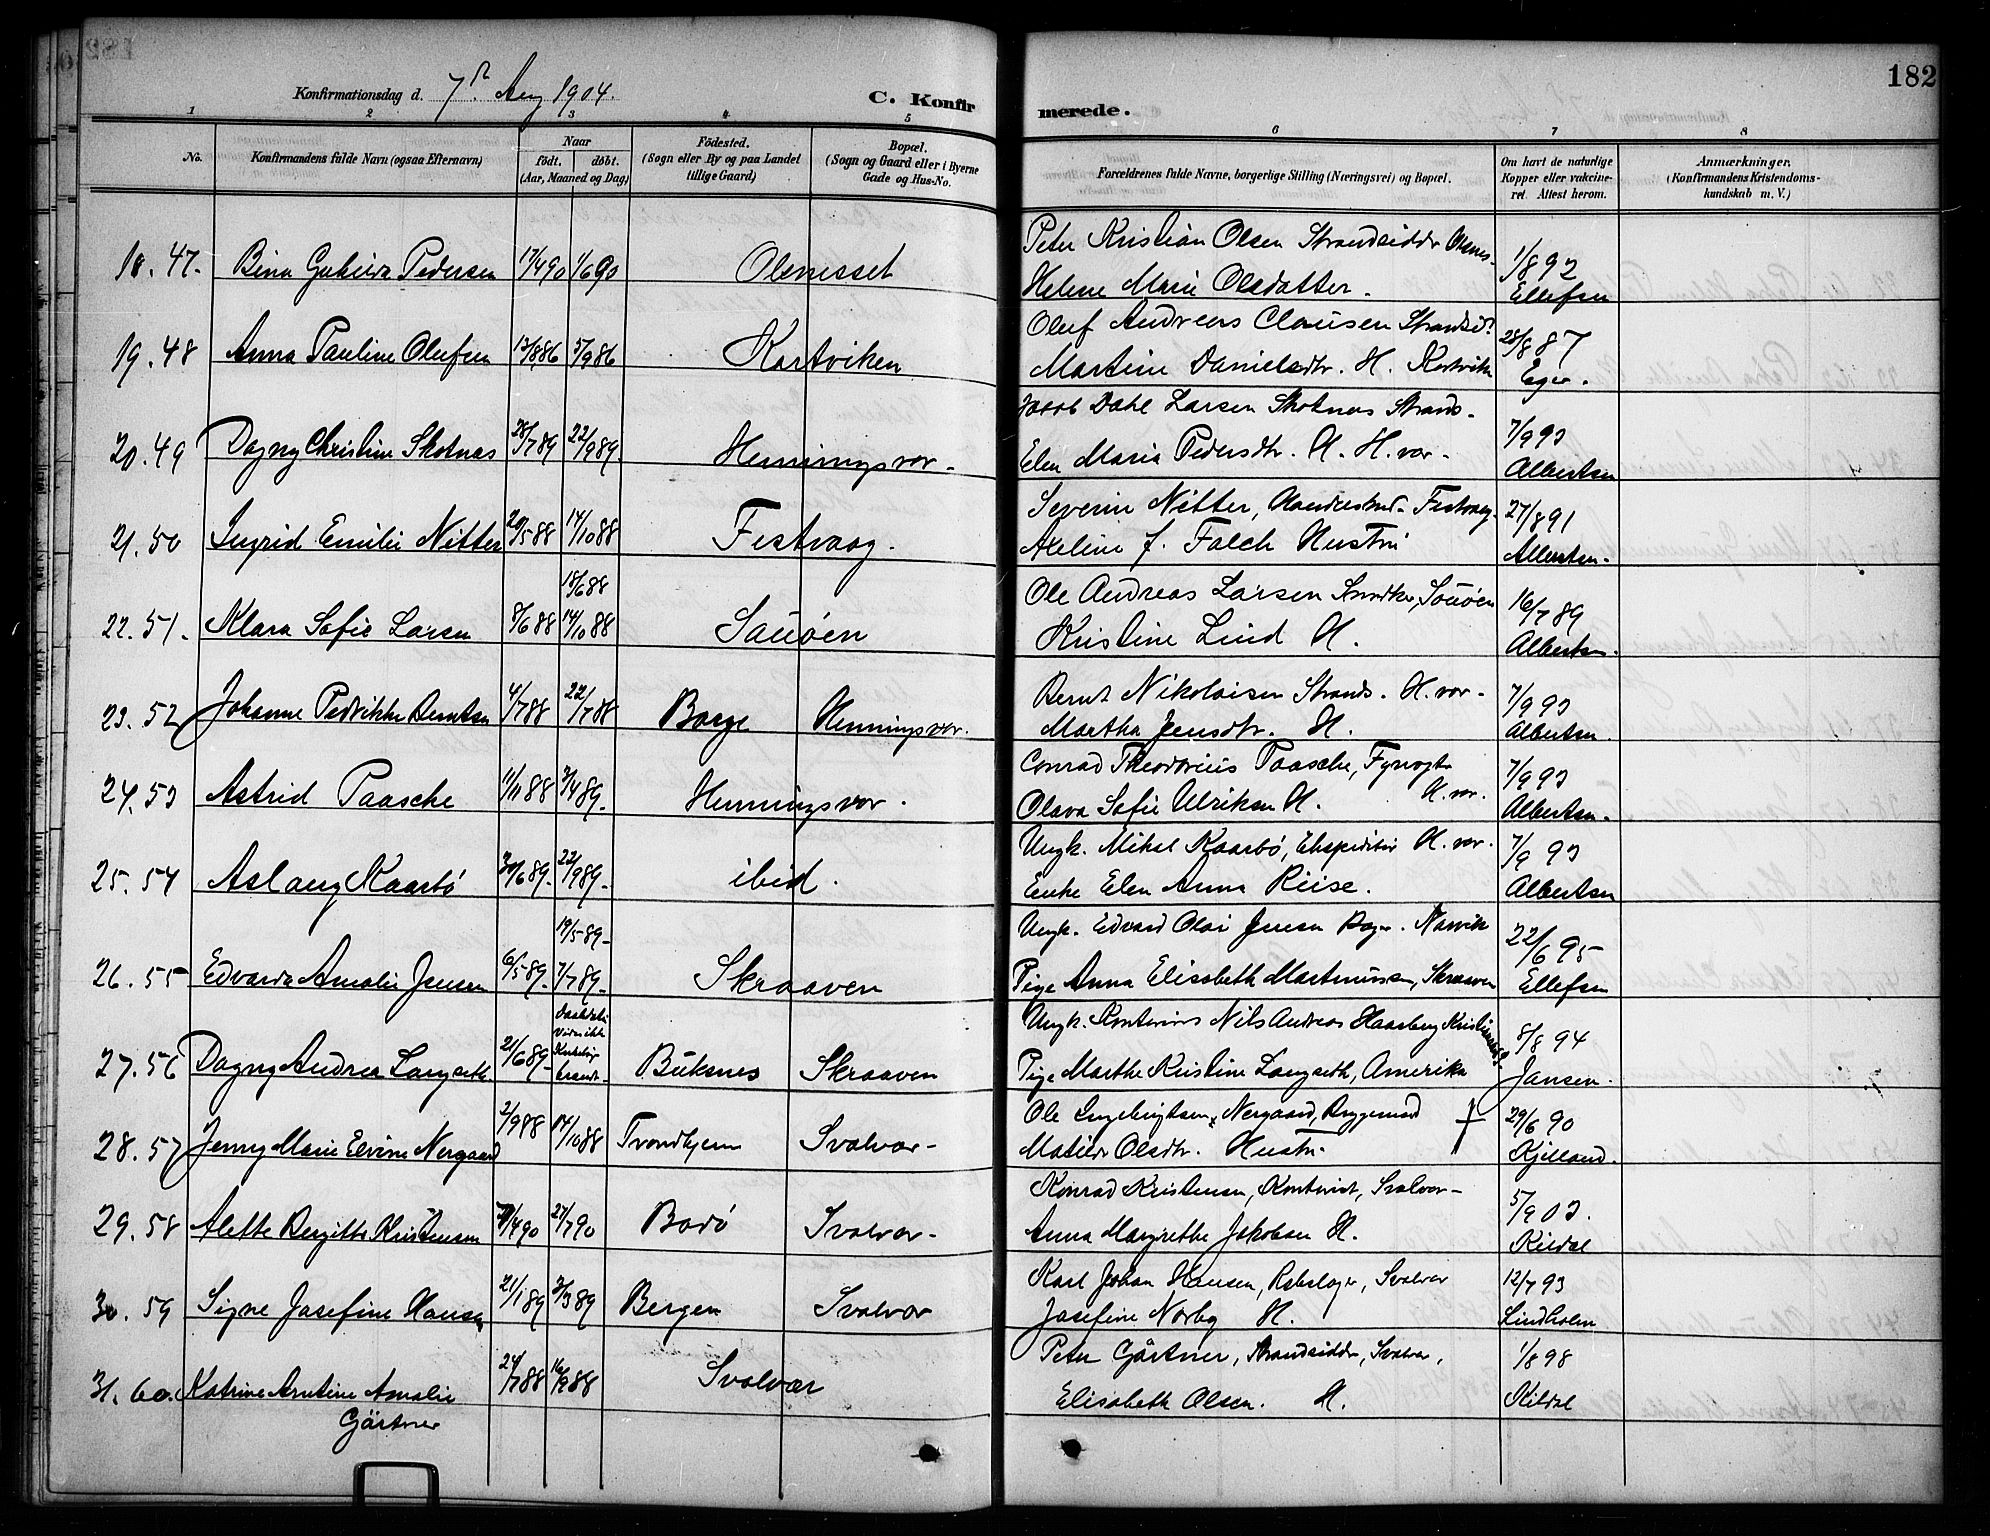 182
Konfirmationsdag d. 7de Aug 1904.
C. Konfirmerede.
1 2 3 4 5 6 7 8
No.
Konfirmandens fulde Navn (ogsaa Efternavn)
Naar
födt. döbt.
(Aar, Maaned og Dag)
Födested.
(Sogn eller By og paa Landet
tillige Gaard)
Bopæl.
(Sogn og Gaard eller i Byerne
Gade og Hus-No.
Forældrenes fulde Navne, borgerlige Stilling (Næringsvei) og Bopæl.
Om havt de naturlige
Kopper eller vakcine-
ret. Attest herom.
Anmærkninger.
(Konfirmandens Kristendoms-
kundskab m. V.)
18. 47. Bina Pedersen 17/4 90 1/6 90 Olsnesset
Peter Kristian Olsen Strandsidder Olsnes-
Helene Marie Olsdatter.
1/8 92
Ellefsen
19. 48 Anna Pauline Olufsen 13/8 86 5/9 86 Kartviken
Oluf Andreas Clausen Strandsid.
Martine Danielsdtr. H. Kartvik
28/8 87
Eger.
20. 49 Dagny Christine Skotnes 28/7 89 22/9 89. Henningsvær.
Jacob Dahl Larsen Skotnes Strands.
Elen Maria Pedersdtr. H. H.vær.
7/9 93
Albertsen
21. 50 Ingrid Emilie Nitter 20/5 88 14/10 88 Festvaag.
Severin Nitter, Handelsbud. Festvaag.
Axeline f. Falch Hustru
27/8 91
Albertsen.
22. 51. Klara Sofie Larsen 8/6 88 15/6 88
14/10 88 Sauøen
Ole Andreas Larsen Sauøen
Kristine Lind H.
16/7 89
Albertsen.
23. 52 Johanne Pedrikke Berntsen 4/7 88 22/7 88 Borge Henningsvær.
Bernt Nikolaisen Strands. H.vær.
Martha Jensdtr. H.
7/9 93
Albertsen.
24. 53 Astrid Paasche 11/11 88 3/4 89. Henningsvær.
Conrad Theodorius Paasche, Fyrvogter
Olava Sofie Ulriksen H. H.vær.
7/9 93
Albertsen.
25. 54 Aslaug Kaarbö 30/6 89. 22/9 89. ibid.
Ungk. Mikal Kaarbö, Ekspeditör H.vær.
Enke Elen Anna Riise.
7/9 93
Albertsen
26. 55 Edvarda Amalie Jensen 6/5 89. 19/5 89.
7/7 89. Skraaven
Ungk. Edvard Olai Jensen Narvik
Pige Anna Elisabeth Martinussen, Skraaven
22/6 95
Ellefsen
27. 56 Dagny Andrea Langseth 21/6 89. Buksnes Skraaven
Ungk. Nils Andreas Haasberg
Pige Marthe Kristine Langseth, Amerika
8/8 94
Jansen.
28. 57 Jenny Marie Elvine Nergaard 2/9 88 14/10 88 Trondhjem Svolvær.
Ole Ingebrigtsen Nergaard, Bryggemand †
Matilde Olsdtr. Hustru.
29/6 90
Kjelland.
29. 58 Alette Bergitte Kristensen 27/7 90 Bodö Svolvær.
Konrad Kristensen, Kontorist, Svolvær.
Anna Margrethe Jakobsen H.
5/9 03.
Kildal
30. 59 Signe Josefine Hansen 21/1 89 3/3 89 Bergen Svolvær
Karl Johan Hansen, Rebslager, Svolvær
Josefine Norby H.
12/7 93
Lindholm
31. 60. Katrine Arntine Amalie
Gärtner 24/7 88 16/9 88 Svolvær
Peter Gärtner, Strandsidder, Svolvær,
Elisabeth Olsen. H.
1/8 98
Kildal